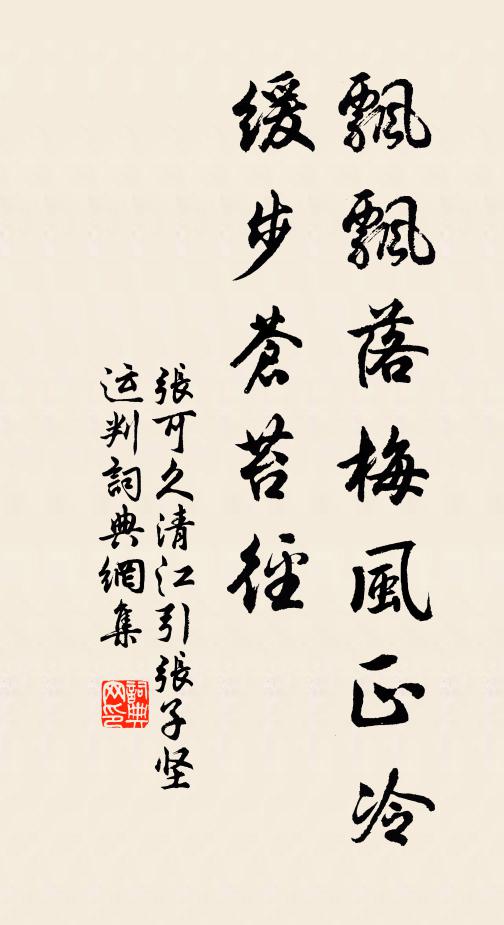 飄飄落梅風正冷
緩步蒼苔徑
張可久清江引張子坚
运判詞典網集
詞典
网印